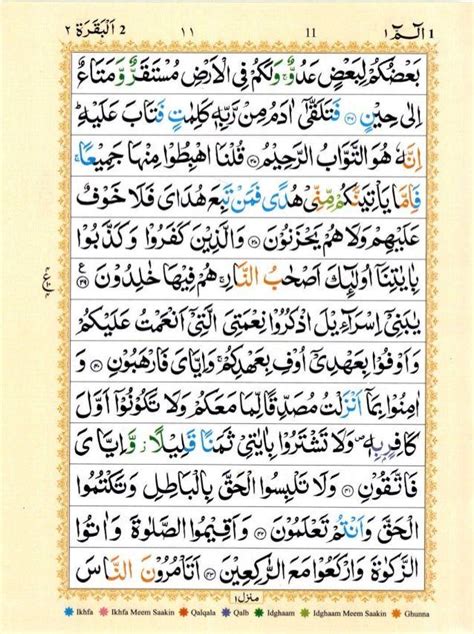 البقرة ٢ 2 ١١ 11 الٓمّٓ ١ 1
بَعْضُكُمْ لِبَعْضٍ عَدُوٌّ ۚ وَلَكُمْ فِى الْاَرْضِ مُسْتَقَرٌّ وَّمَتَاعٌ
اِلٰى حِيْنٍ ﴿۳۶﴾ فَتَلَقّٰٓى اٰدَمُ مِنْ رَّبِّهٖ كَلِمٰتٍ فَتَابَ عَلَيْهِ ؕ
اِنَّهٗ هُوَ التَّوَّابُ الرَّحِيْمُ ﴿۳۷﴾ قُلْنَا اهْبِطُوْا مِنْهَا جَمِيْعًا ۚ
فَاِمَّا يَاْتِيَنَّكُمْ مِّنِّىْ هُدًى فَمَنْ تَبِعَ هُدَاىَ فَلَا خَوْفٌ
عَلَيْهِمْ وَلَا هُمْ يَحْزَنُوْنَ ﴿۳۸﴾ وَالَّذِيْنَ كَفَرُوْا وَكَذَّبُوْا
بِاٰيٰتِنَآ اُولٰٓئِكَ اَصْحٰبُ النَّارِ ۚ هُمْ فِيْهَا خٰلِدُوْنَ ﴿۳۹﴾
يٰبَنِىْٓ اِسْرَآءِيْلَ اذْكُرُوْا نِعْمَتِىَ الَّتِىْٓ اَنْعَمْتُ عَلَيْكُمْ
وَاَوْفُوْا بِعَهْدِىْٓ اُوْفِ بِعَهْدِكُمْ ۚ وَاِيَّاىَ فَارْهَبُوْنِ ﴿۴۰﴾ وَ
اٰمِنُوْا بِمَآ اَنْزَلْتُ مُصَدِّقًا لِّمَا مَعَكُمْ وَلَا تَكُوْنُوْٓا اَوَّلَ
كَافِرٍۭ بِهٖ ۪ وَلَا تَشْتَرُوْا بِاٰيٰتِىْ ثَمَنًا قَلِيْلًا ۫ وَّاِيَّاىَ
فَاتَّقُوْنِ ﴿۴۱﴾ وَلَا تَلْبِسُوا الْحَقَّ بِالْبَاطِلِ وَتَكْتُمُوا
الْحَقَّ وَاَنْتُمْ تَعْلَمُوْنَ ﴿۴۲﴾ وَاَقِيْمُوا الصَّلٰوةَ وَاٰتُوا
الزَّكٰوةَ وَارْكَعُوْا مَعَ الرّٰكِعِيْنَ ﴿۴۳﴾ اَتَاْمُرُوْنَ النَّاسَ
منزل ١
Ikhfa Ikhfa Meem Saakin Qalqala Qalb Idghaam Idghaam Meem Saakin Ghunna